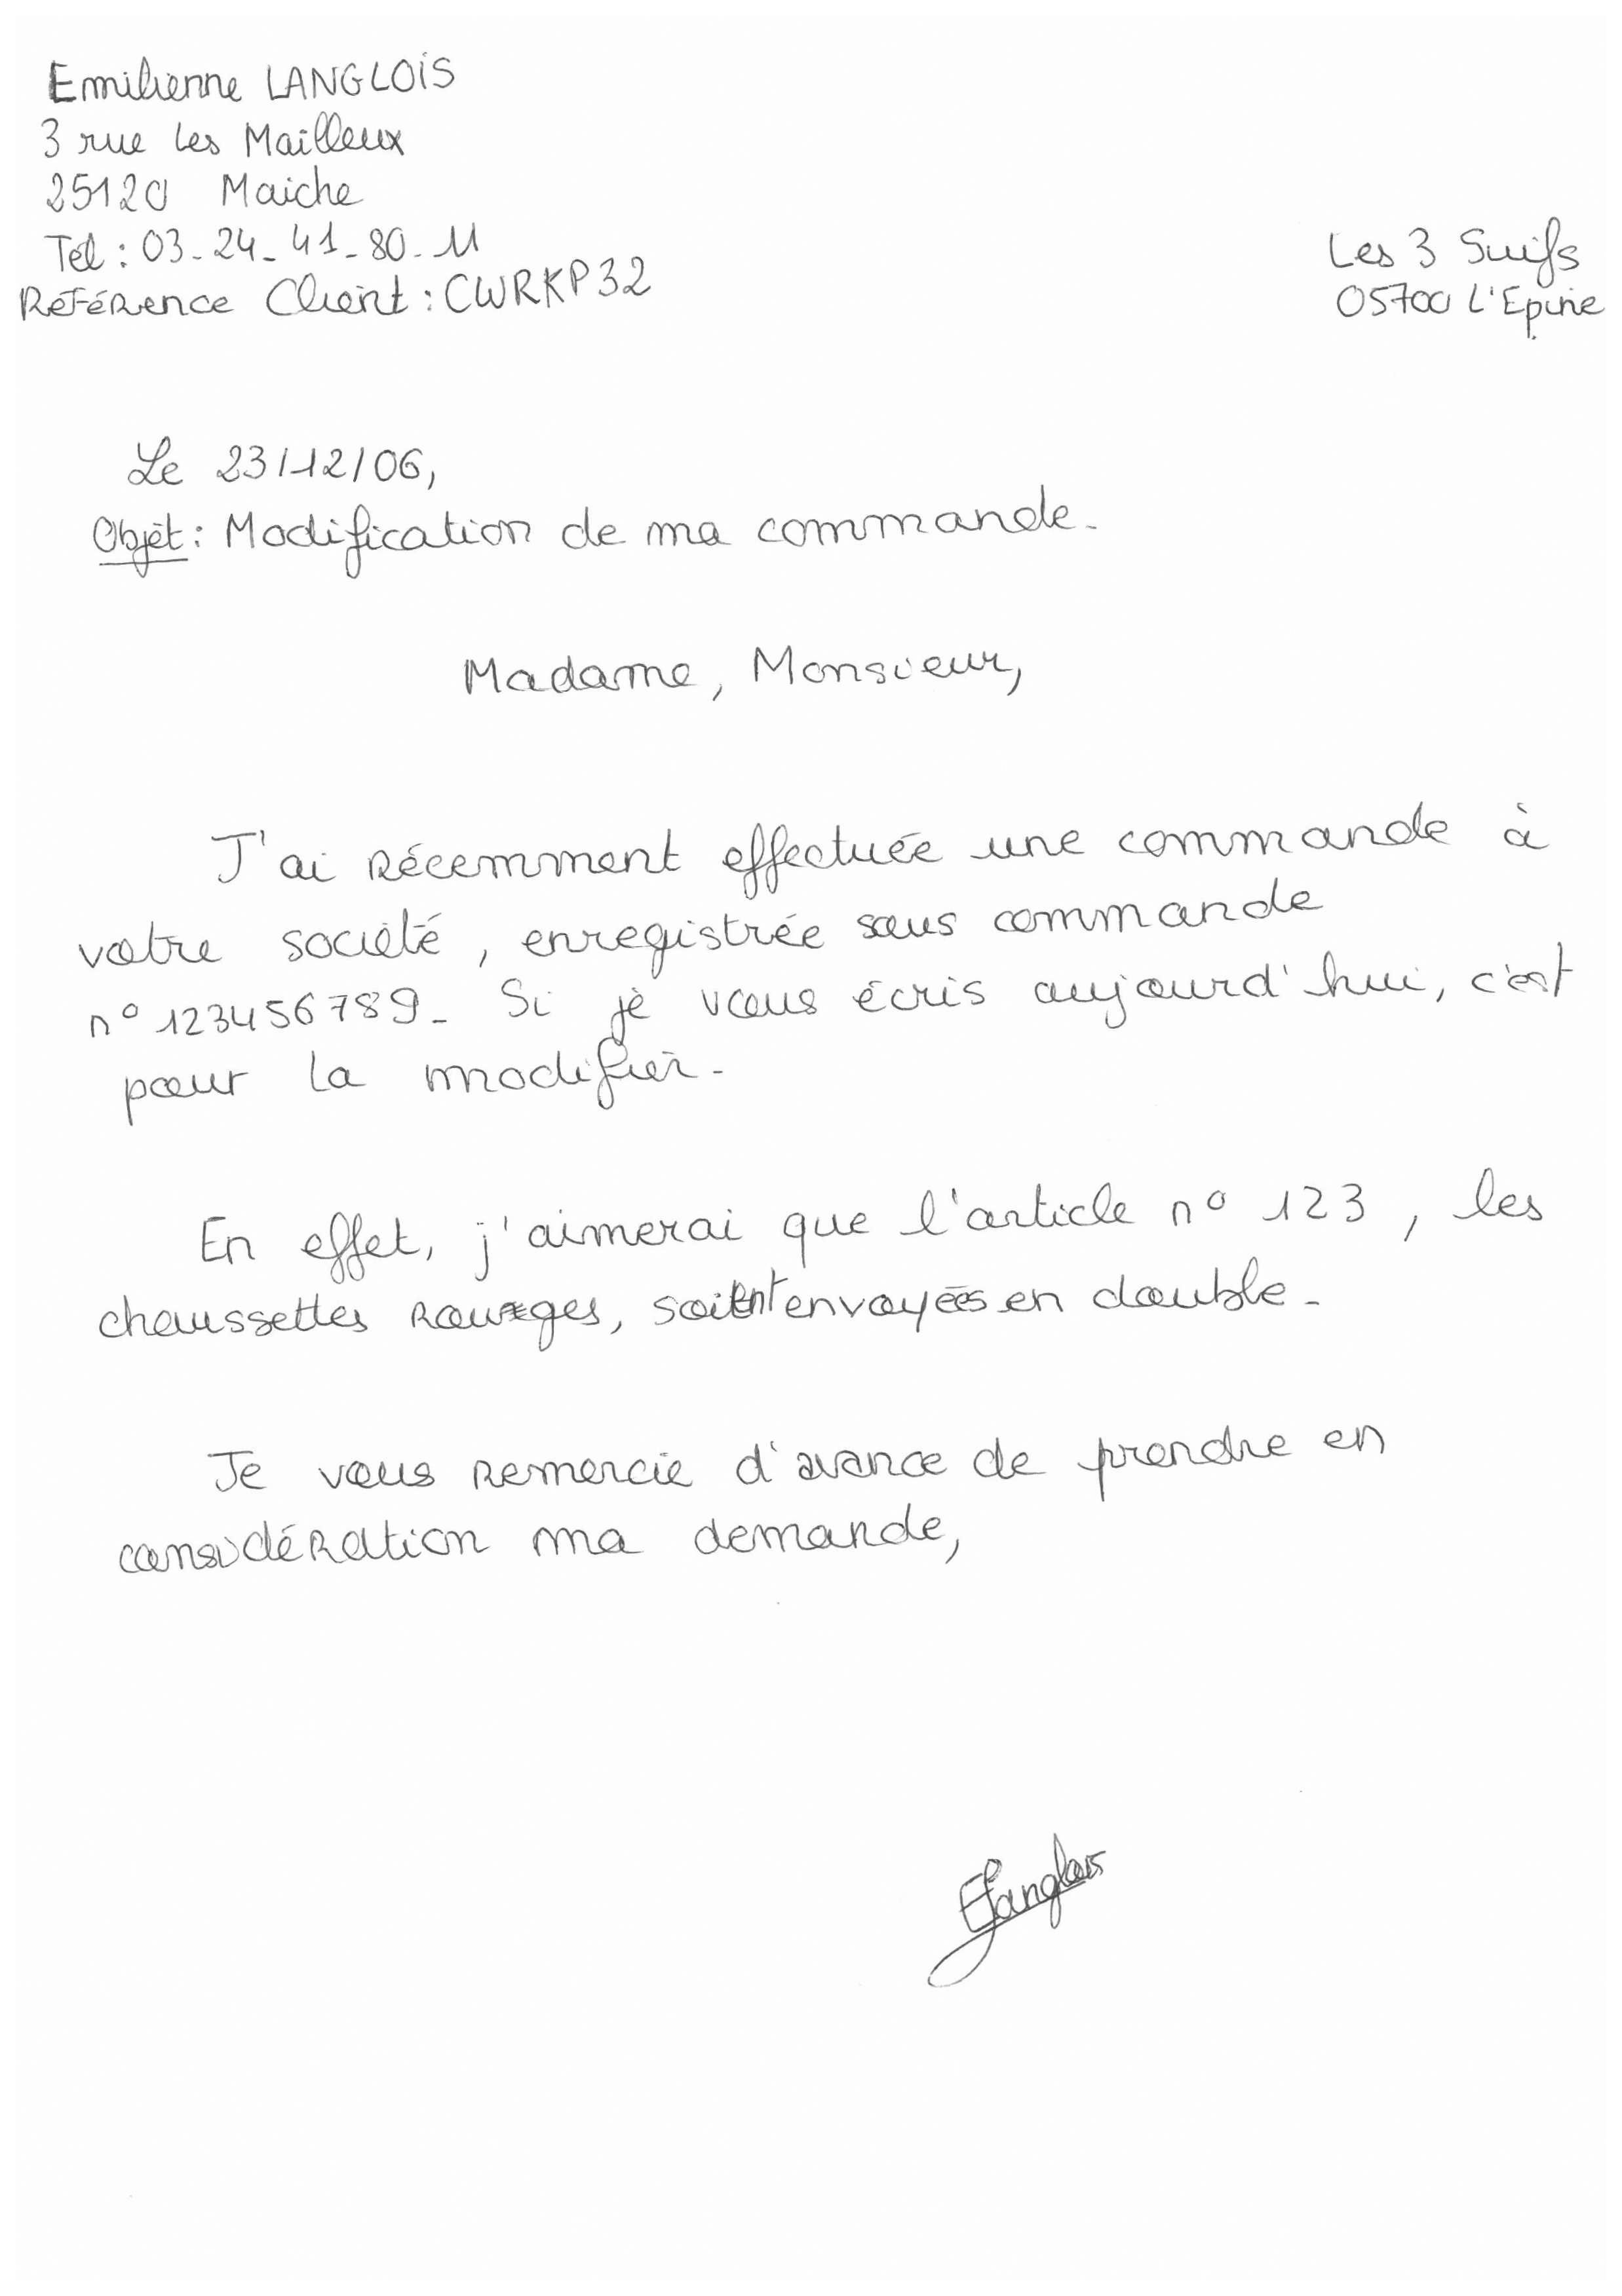 Emilienne LANGLOIS
3 rue Les Mailleux
25120 Maiche
Tel : 03-24-41-80-11
Référence Client : CWRKP32
Les 3 Suifs
05700 L'Epine
Le 23/12/06,
Objet : Modification de ma commande.
Madame, Monsieur,
J'ai récemment effectuée une commande à
votre société, enregistrée sous commande
n° 123456789. Si je vous écris aujourd'hui, c'est
pour la modifier.
En effet, j'aimerai que l'article n° 123, les
chaussettes rouges, soient envoyées en double.
Je vous remercie d'avance de prendre en
considération ma demande,
ELanglois